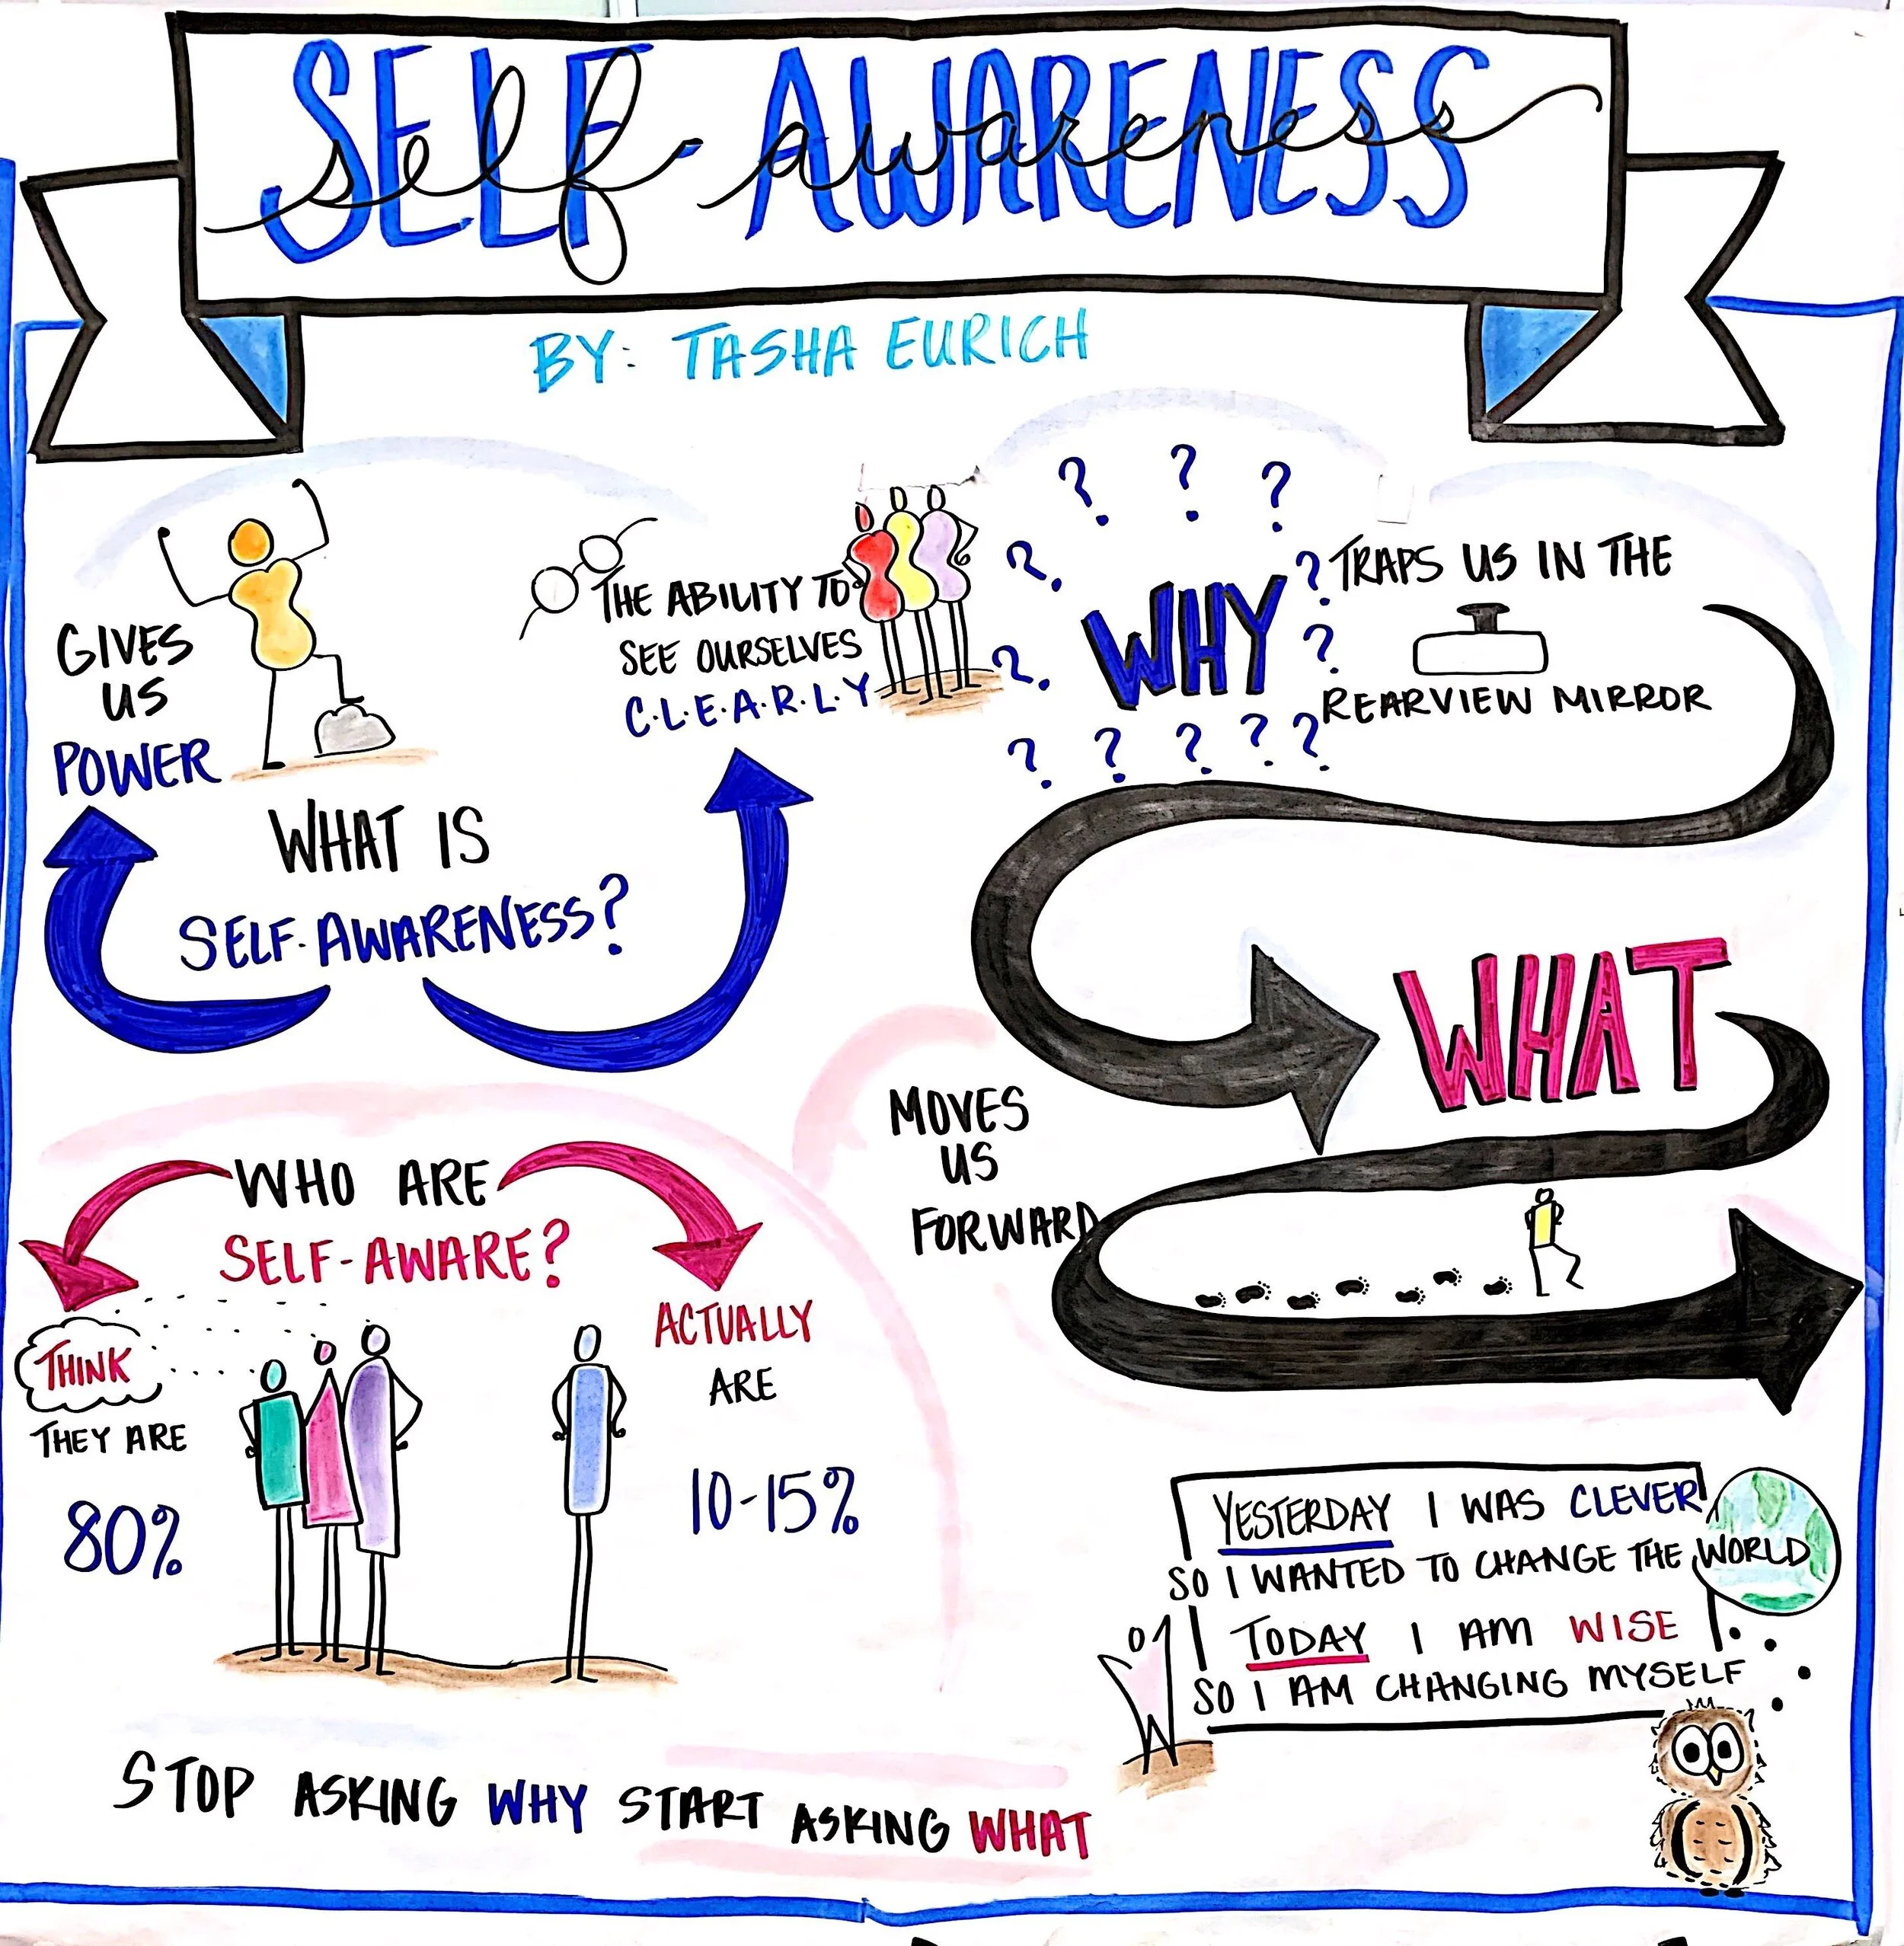 SELF-AWARENESS
self-awareness
BY: TASHA EURICH
GIVES
US
POWER
THE ABILITY TO
SEE OURSELVES
C.L.E.A.R.L.Y
WHAT IS
SELF-AWARENESS?
? ? ?
?
?
? ? ? ? ?
?
?
WHY
TRAPS US IN THE
REARVIEW MIRROR
WHAT
MOVES
US
FORWARD
WHO ARE
SELF-AWARE?
THINK
THEY ARE
80%
ACTUALLY
ARE
10-15%
YESTERDAY I WAS CLEVER
SO I WANTED TO CHANGE THE WORLD
TODAY I AM WISE
SO I AM CHANGING MYSELF
STOP ASKING WHY START ASKING WHAT